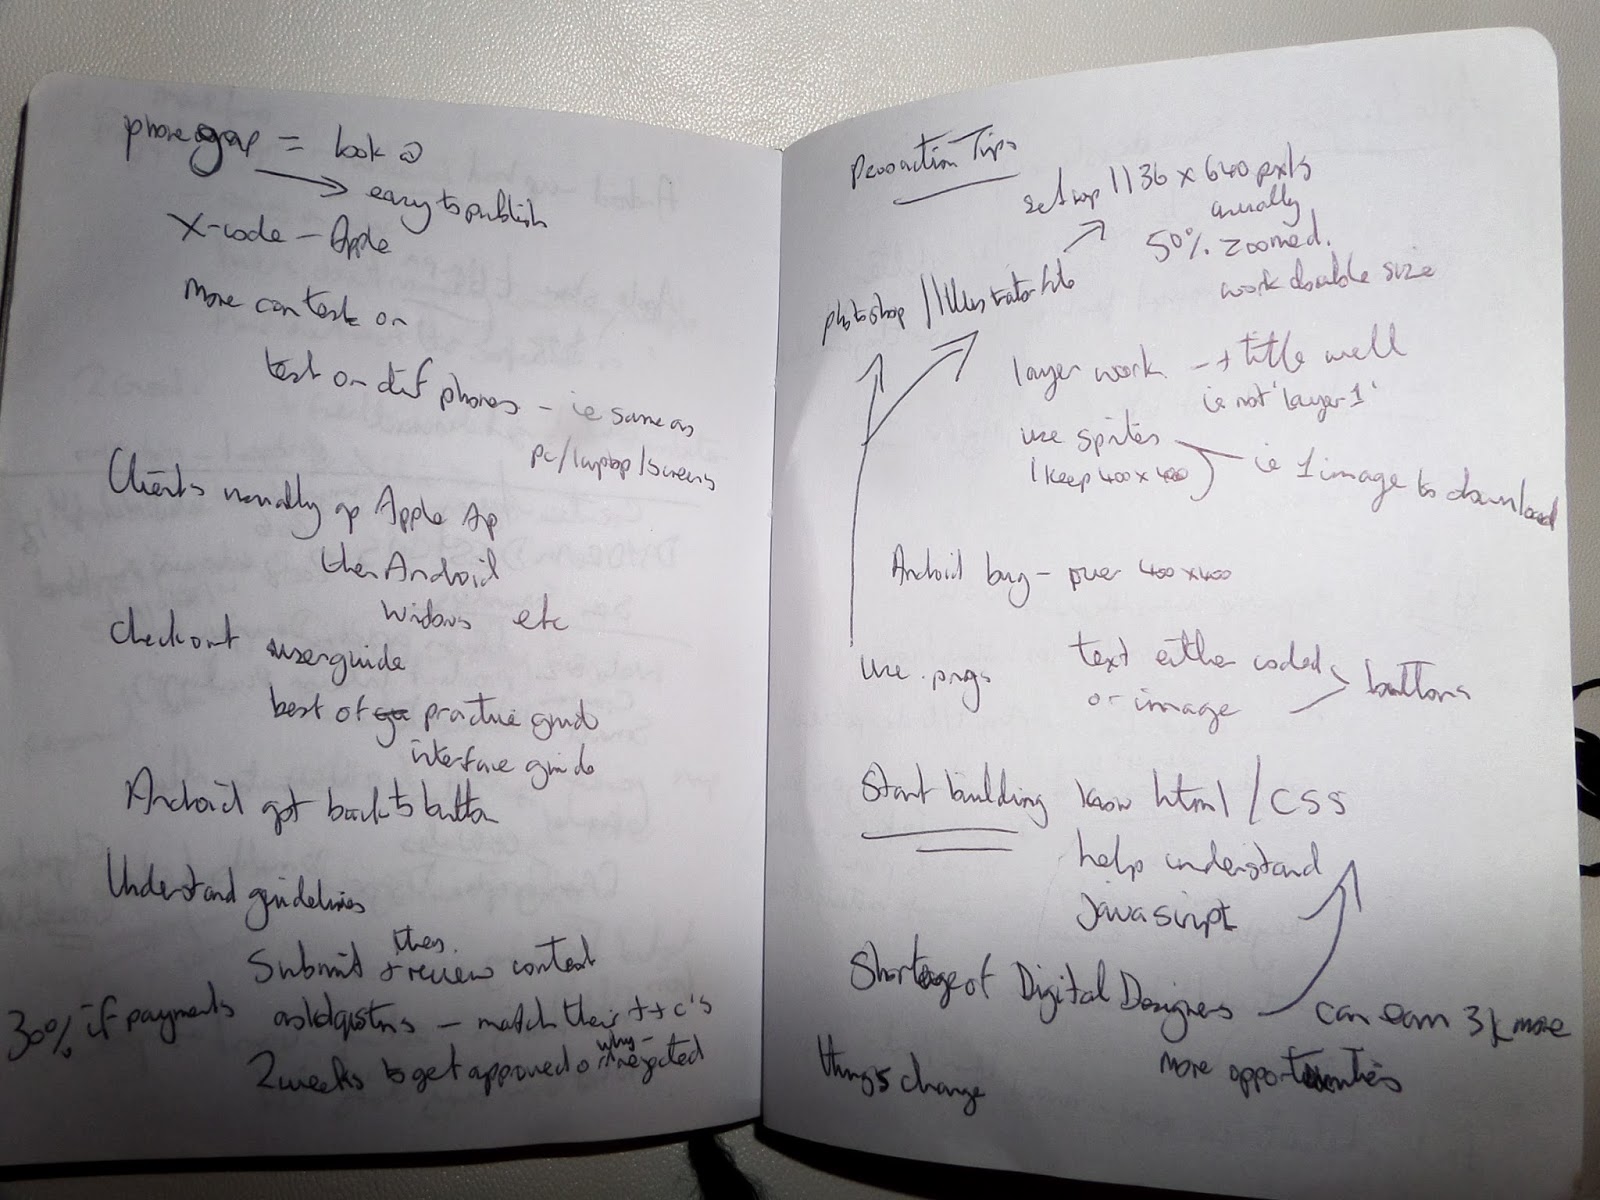 phonegap = look @
→ easy to publish
X-code - Apple
more contest on
test on dif phones - ie same as
pc/laptop/screens
Clients normally go Apple Ap
then Android
Windows etc
Check out userguide
best of practice guid
interface guide
Android got back to button
Understand guidelines
Submit + they review content
30% if payments
ask questns - match their t+c's
2 weeks to get approved or rejected
why -
Prooaction Tips
set up 1136 x 640 pxls
usually
50% zoomed.
work double size
photoshop / Illustrator file
layer work - + title well
ie not 'layer 1'
use sprites
(keep 400 x 400) ie 1 image to download
Android bug - over 400 x 400
use .pngs
text either coded
or image
buttons
Start building know html / CSS
help understand
Javascript
Shortage of Digital Designers
can earn 3k more
more opportunities
things change